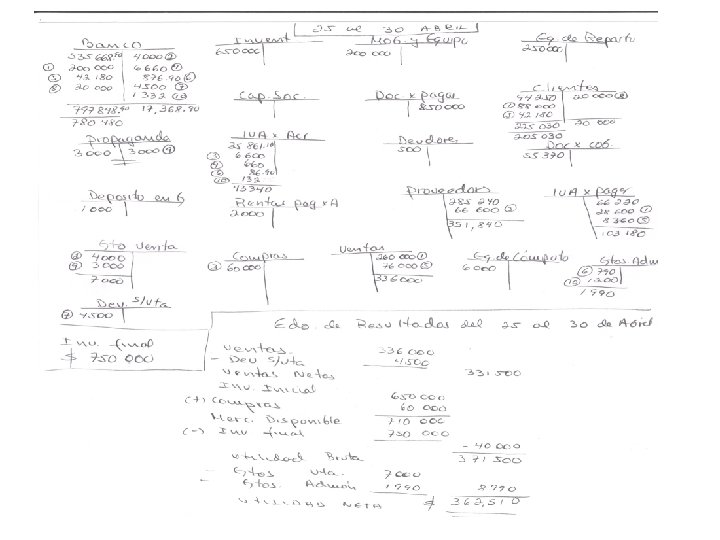 25 al 30 ABRIL
Banco
535 668.90 4000 ②
① 200 000 6660 ④
③ 42 180 876.90 ⑥
⑧ 20 000 4500 ⑦
1332 ⑩
797848.90 17,368.90
780 480
Inventa
650 000
Mob. y Equipo
200 000
Eq. de Reparto
250 000
Cap. Soc.
Doc x pagar
850 000
Clientes
94 250 20 000 ⑧
① 88 600
⑤ 42 180
225 030 20 000
205 030
Propaganda
3 000 3 000 ④
IVA x Acr
25 861.10
③ 6 600
④ 660
⑥ 86.90
⑩ 132
Deudores
500
Doc x cob.
55 370
Deposito en G
1 000
Rentas pag x A
2000
Proveedores
285 240
66 600 ③
351,840
IVA x pagar
66 220
28 600 ①
8 360 ⑤
103 180
Gto Venta
② 4000
④ 3000
7000
Compras
③ 60 000
Ventas
260 000 ①
76 000 ⑤
336 000
Eq. de Cómputo
6 000
Gtos. Adm
⑥ 790
⑩ 1200
1 990
Dev. s/vta
⑦ 4500
Inv final
$ 750 000
Edo. de Resultados del 25 al 30 de Abril
Ventas 336 000
- Dev s/vta 4500
Ventas Netas 331 500
Inv. Inicial 650 000
(+) Compras 60 000
Merc. Disponible 710 000
(-) Inv final 750 000
- 40 000
Utilidad Bruta 371 500
- Gtos Vta. 7000
- Gtos. Admón 1990 8990
UTILIDAD NETA $ 362,510